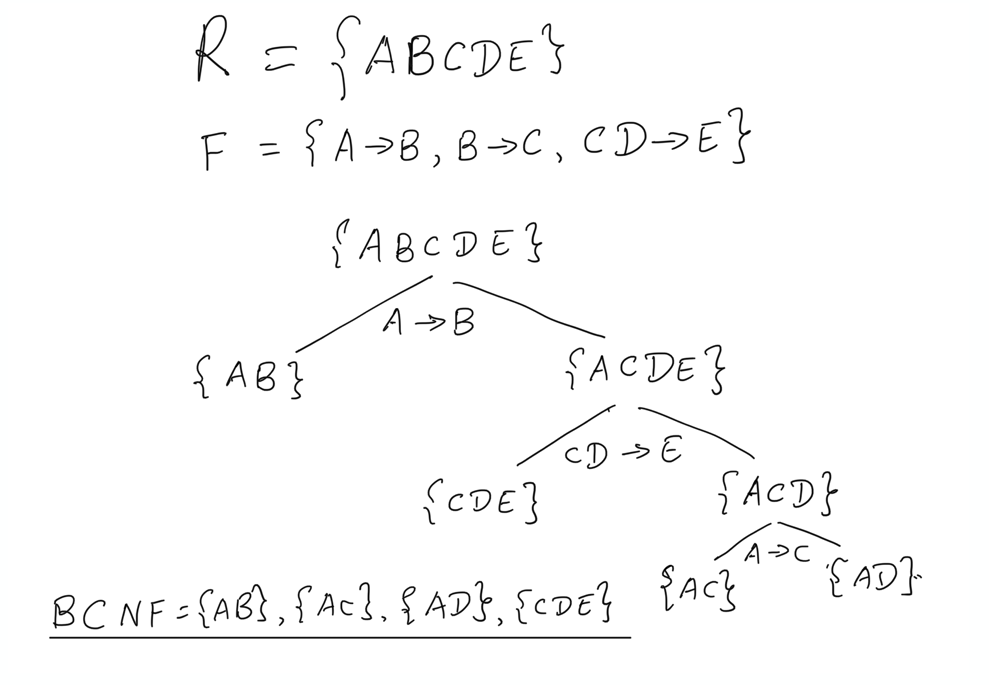 R = {ABCDE}
F = {A→B, B→C, CD→E}
{ABCDE}
A→B
{AB}
{ACDE}
CD→E
{CDE}
{ACD}
A→C
{AC}
{AD}
BCNF={AB}, {AC}, {AD}, {CDE}